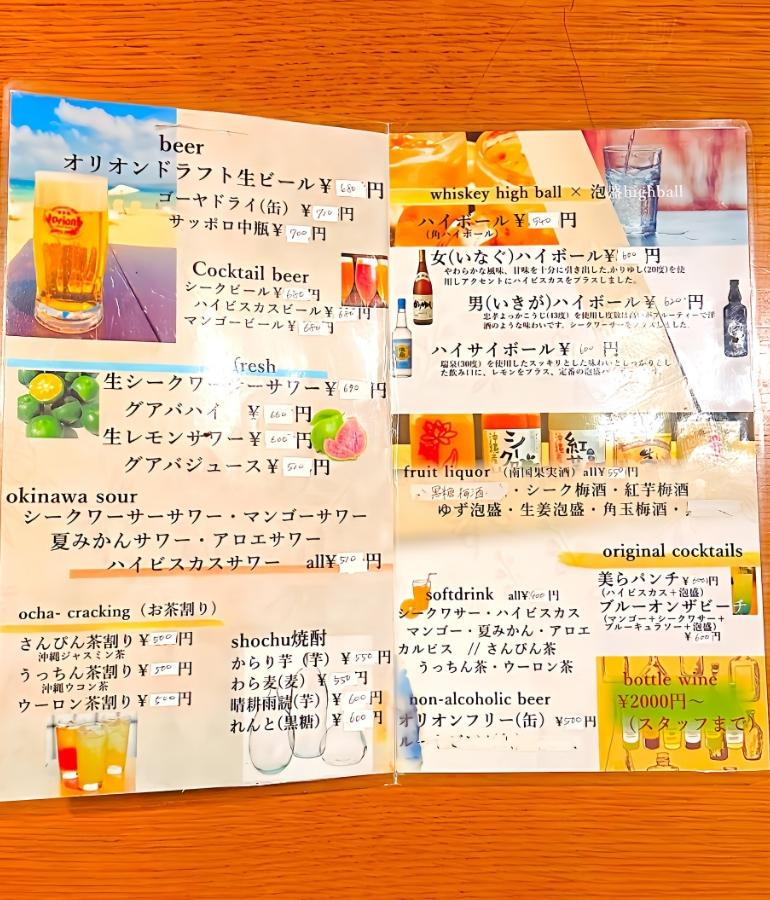 beer
オリオンドラフト生ビール¥680円
ゴーヤドライ(缶) ¥710円
サッポロ中瓶¥700円
Orion
Cocktail beer
シークビール¥680円
ハイビスカスビール¥680円
マンゴービール¥680円
fresh
生シークワーサーサワー¥690円
グアバハイ ¥660円
生レモンサワー¥600円
グアバジュース¥510円
okinawa sour
シークワーサーサワー・マンゴーサワー
夏みかんサワー・アロエサワー
ハイビスカスサワー all¥510円
ocha- cracking（お茶割り）
さんぴん茶割り¥500円
沖縄ジャスミン茶
うっちん茶割り¥500円
沖縄ウコン茶
ウーロン茶割り¥500円
shochu焼酎
からり芋（芋）¥550円
わら麦(麦) ¥550円
晴耕雨読(芋) ¥600円
れんと(黒糖) ¥600円
whiskey high ball × 泡盛highball
ハイボール¥540円
（角ハイボール）
女(いなぐ)ハイボール¥600円
やわらかな風味、甘味を十分に引き出した,かりゆし(20度)を使
用しアクセントにハイビスカスをプラスしました。
男(いきが)ハイボール¥620円
忠孝よっかこうじ(43度）を使用し度数は高いがフルーティーで洋
酒のような味わいです。シークワーサーをプラスしました。
ハイサイボール¥600円
瑞泉(30度）を使用したスッキリとした味わいとしっかりとし
た飲み口に、レモンをプラス、定番の泡盛
fruit liquor（南国果実酒）all¥550円
黒糖梅酒・シーク梅酒・紅芋梅酒
ゆず泡盛・生姜泡盛・角玉梅酒・
original cocktails
美らパンチ¥600円
(ハイビスカス＋泡盛)
ブルーオンザビーチ
(マンゴー＋シークワサー＋
ブルーキュラソー＋泡盛)
¥600円
softdrink all¥400円
シークワサー・ハイビスカス
マンゴー・夏みかん・アロエ
カルピス // さんぴん茶
うっちん茶・ウーロン茶
non-alcoholic beer
オリオンフリー(缶) ¥500円
bottle wine
¥2000円～
（スタッフまで